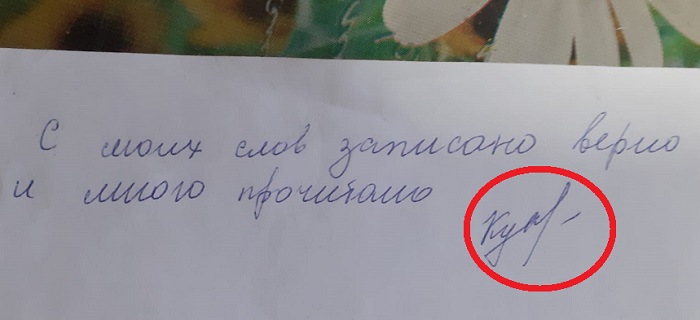 С моих слов записано верно
и мною прочитано